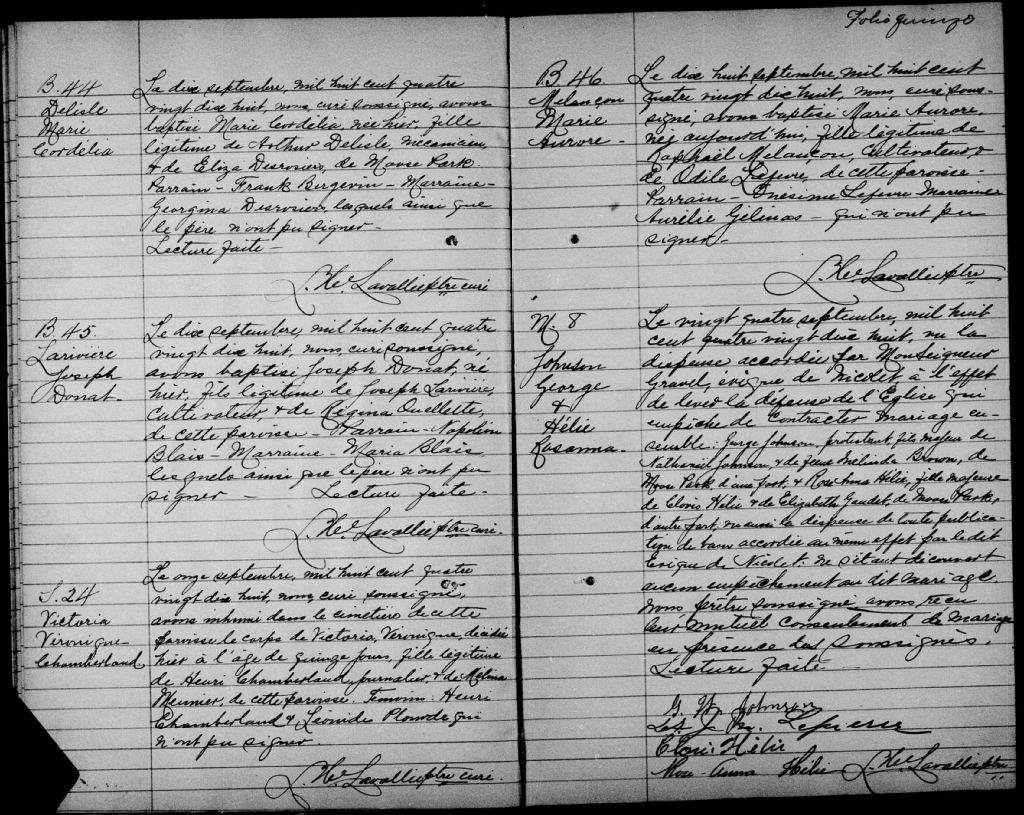 Folio quinze
B. 44
Delisle
Marie
Cordélia
Le dix septembre, mil huit cent quatre
vingt dix huit, nous curé soussigné, avons
baptisé Marie Cordélia, née hier, fille
légitime de Arthur Delisle, mécanicien,
& de Eliza Desrosiers, de Moose Park.
Parrain - Frank Bergevin - Marraine -
Georgina Desrosiers, lesquels ainsi que
le père n'ont pu signer -
Lecture faite -
Ls. Hé. Lavallée ptre curé
B 45.
Larivière
Joseph
Donat -
Le dix septembre, mil huit cent quatre
vingt dix huit, nous, curé soussigné,
avons baptisé Joseph Donat, né
hier, fils légitime de Joseph Larivière,
cultivateur, & de Régina Ouellette,
de cette paroisse - Parrain - Napoléon
Blais - Marraine - Maria Blais,
lesquels ainsi que le père n'ont pu
signer - Lecture faite -
Ls. Hé. Lavallée ptre curé -
S. 24
Victoria
Véronique
Chamberland
Le onze septembre, mil huit cent quatre
vingt dix huit, nous curé soussigné,
avons inhumé dans le cimetière de cette
paroisse le corps de Victoria, Véronique, décédée
hier à l'âge de quinze jours, fille légitime
de Henri Chamberland, journalier, & de Mélina
Meunier, de cette paroisse. Témoins: Henri
Chamberland & Léonide Plourde qui
n'ont pu signer -
Ls. Hé. Lavallée ptre curé -
B 46
Melançon
Marie
Aurore -
Le dix huit septembre, mil huit cent
quatre vingt dix huit, nous, curé sous-
signé, avons baptisé Marie Aurore,
née aujourd'hui, fille légitime de
Raphaël Melançon, cultivateur, &
de Odile Lefevre, de cette paroisse -
Parrain - Onésime Lefevre Marraine
Aurélie Gélinas - qui n'ont pu
signer -
Ls. Hé. Lavallée ptre
M. 8
Johnson
George
&
Hélie
Rosanna -
Le vingt quatre septembre, mil huit
cent quatre vingt dix huit, vu la
dispense accordée par Monseigneur
Gravel, évêque de Nicolet, à l'effet
de lever la défense de l'Eglise qui
empêche de contracter mariage en-
semble: George Johnson, protestant, fils majeur de
Nathaniel Johnson, & de Jeune Mélinda Brown, de
Moose Park d'une part, & Rose Anna Hélie, fille majeure
de Cloris Hélie & de Elizabeth Gaudet, de Moose Park,
d'autre part, vu aussi la dispense de toute publica-
tion de bans accordée au même effet par le dit
Evêque de Nicolet: ne s'étant découvert
aucun empêchement au dit mariage,
nous prêtre soussigné avons reçu
leur mutuel consentement de mariage
en présence des soussignés.
Lecture faite -
G. W. Johnson
Cloris Hélie
Rose-Anna Hélie Ls. Hé. Lavallée ptre